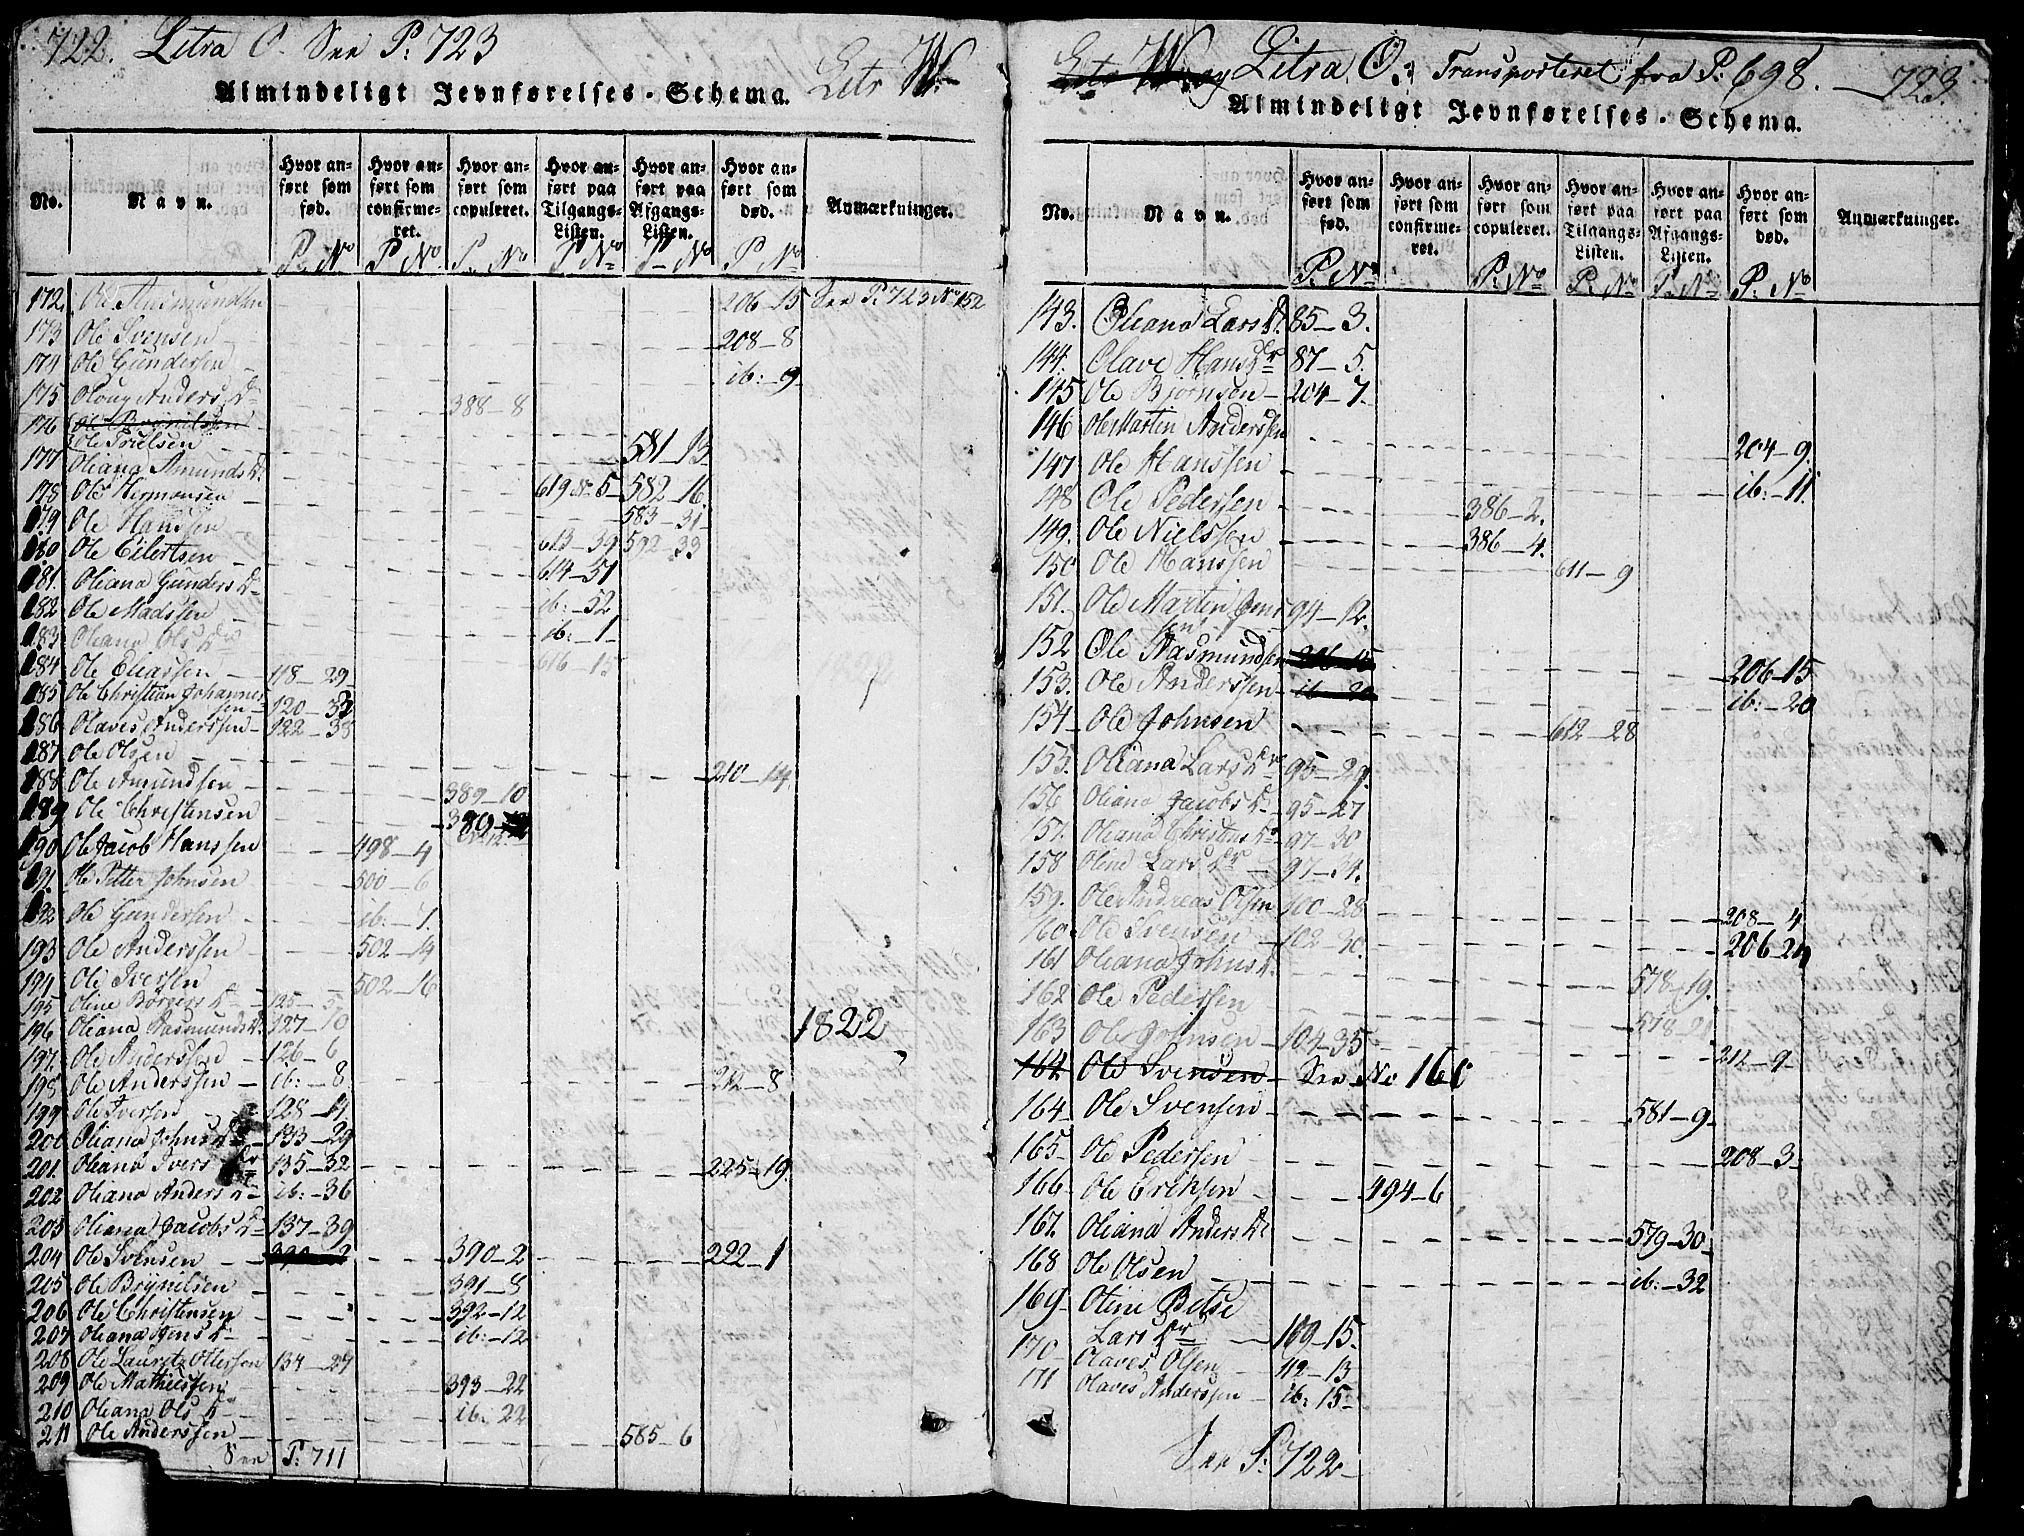 722. Litra O. See P. 723
Litr W.
Almindeligt Jevnførelses-Schema.
No. Navn. Hvor anført som fød. Hvor anført som confirmeret. Hvor anført som copuleret. Hvor anført paa Tilgangs-Listen. Hvor anført paa Afgangs-Listen. Hvor anført som død. Anmærkninger.
P. No P. No P. No P. No P. No P. No
172. Ole Aasmundsen 206-15 See P. 723 No 152
173 Ole Svensen 208-8
174 Ole Gundersen ib:-9
175 Anders Dr 388-8
176 Ole Trulsen 581-13
177 Oliana Amunds Dr 619 5 582-16
178 Ole Hermansen 583-31
179 Ole Hanssen 613-39 592-33
180 Ole Eilertsen 614-51
181 Oliana Gunders Dr ib:-52
182 Ole Madssen ib:-1
183 Oliana Ols Dr 616-15
184 Ole Eliassen 118-29
185 Ole Christian Johannessen 120-33
186 Olaves Anderssen 122-38
187 Ole Olsen 210-14
188 Ole Amundsen 389-10
189 Ole Christensen 390
190 Ole Jacob Hanssen 498-4
191 Ole Petter Johnsen 500-6
192 Ole Gundersen ib:-7.
193 Ole Anderssen 502-14
194 Ole Iversen 502-16
195 Oline Börges Dr 125-5
196 Oliana Aasmunds Dr 127-10
1822
197. Ole Anderssen 126-6
198 Ole Anderssen ib:-8 212-8
199 Ole Iversen 128-14
200 Oliana Johns Dr 133-29
201. Oliana Ivers Dr 135-32 225-19
202 Oliana Anders Dr ib:-36
203 Oliana Jacobs Dr 137-39
204 Ole Svensen 390-2 222-1
205 Ole Brynilsen 391-8
206 Ole Christensen 392-12
207 Oliana Jens Dr ib:-12
208 Ole Lauritz Ottersen 134-27
209 Ole Mathiessen 393-22
210 Oliana Ols Dr ib: 22
211 Ole Anderssen 585-6
See P. 711
Litra O. Transporteret fra P. 698. 723.
Almindeligt Jevnførelses-Schema.
No. Navn. Hvor anført som fød. Hvor anført som confirmeret. Hvor anført som copuleret. Hvor anført paa Tilgangs-Listen. Hvor anført paa Afgangs-Listen. Hvor anført som død. Anmærkninger.
P. No P. No P. No P. No P. No
143. Oliana Lars D. 85-3.
144. Olave Hans Dr 87-5.
145 Ole Bjørnsen 204-7.
146 Ole Martin Anderssen 204-9.
147 Ole Hanssen ib:-11.
148 Ole Pedersen 386-2.
149. Ole Nielssen 386-4.
150 Ole Hanssen 611-9
151. Ole Martin Jensen 94-12.
152 Ole Aasmundsen 206-15
153. Ole Anderssen ib:-20
154 Ole Johnsen 612-28
155. Oliana Lars Dr 95-29.
156 Oliana Jacobs Dr 95-27
157. Oliana Christens Dr 97-30
158 Oline Lars Dr 97-34.
159. Ole Andreas Olsen 100-28 208-4
160. Ole Svensen 102-30. 206-24
161 Oliana Johns D. 578-19.
162 Ole Pedersen 578-21
163 Ole Johnsen 104-35 212-9
164 Ole Svensen See No 160
164 Ole Svensen 581-9
165 Ole Pedersen 208-3
166 Ole Eriksen 494-6
167. Oliana Anders Dr 579-30
168 Ole Olsen ib:-32
169 Oline Betse
Lars Dr 109-15.
170 Olaves Olsen 112-13
171 Olaves Anderssen ib: 15
See P. 722